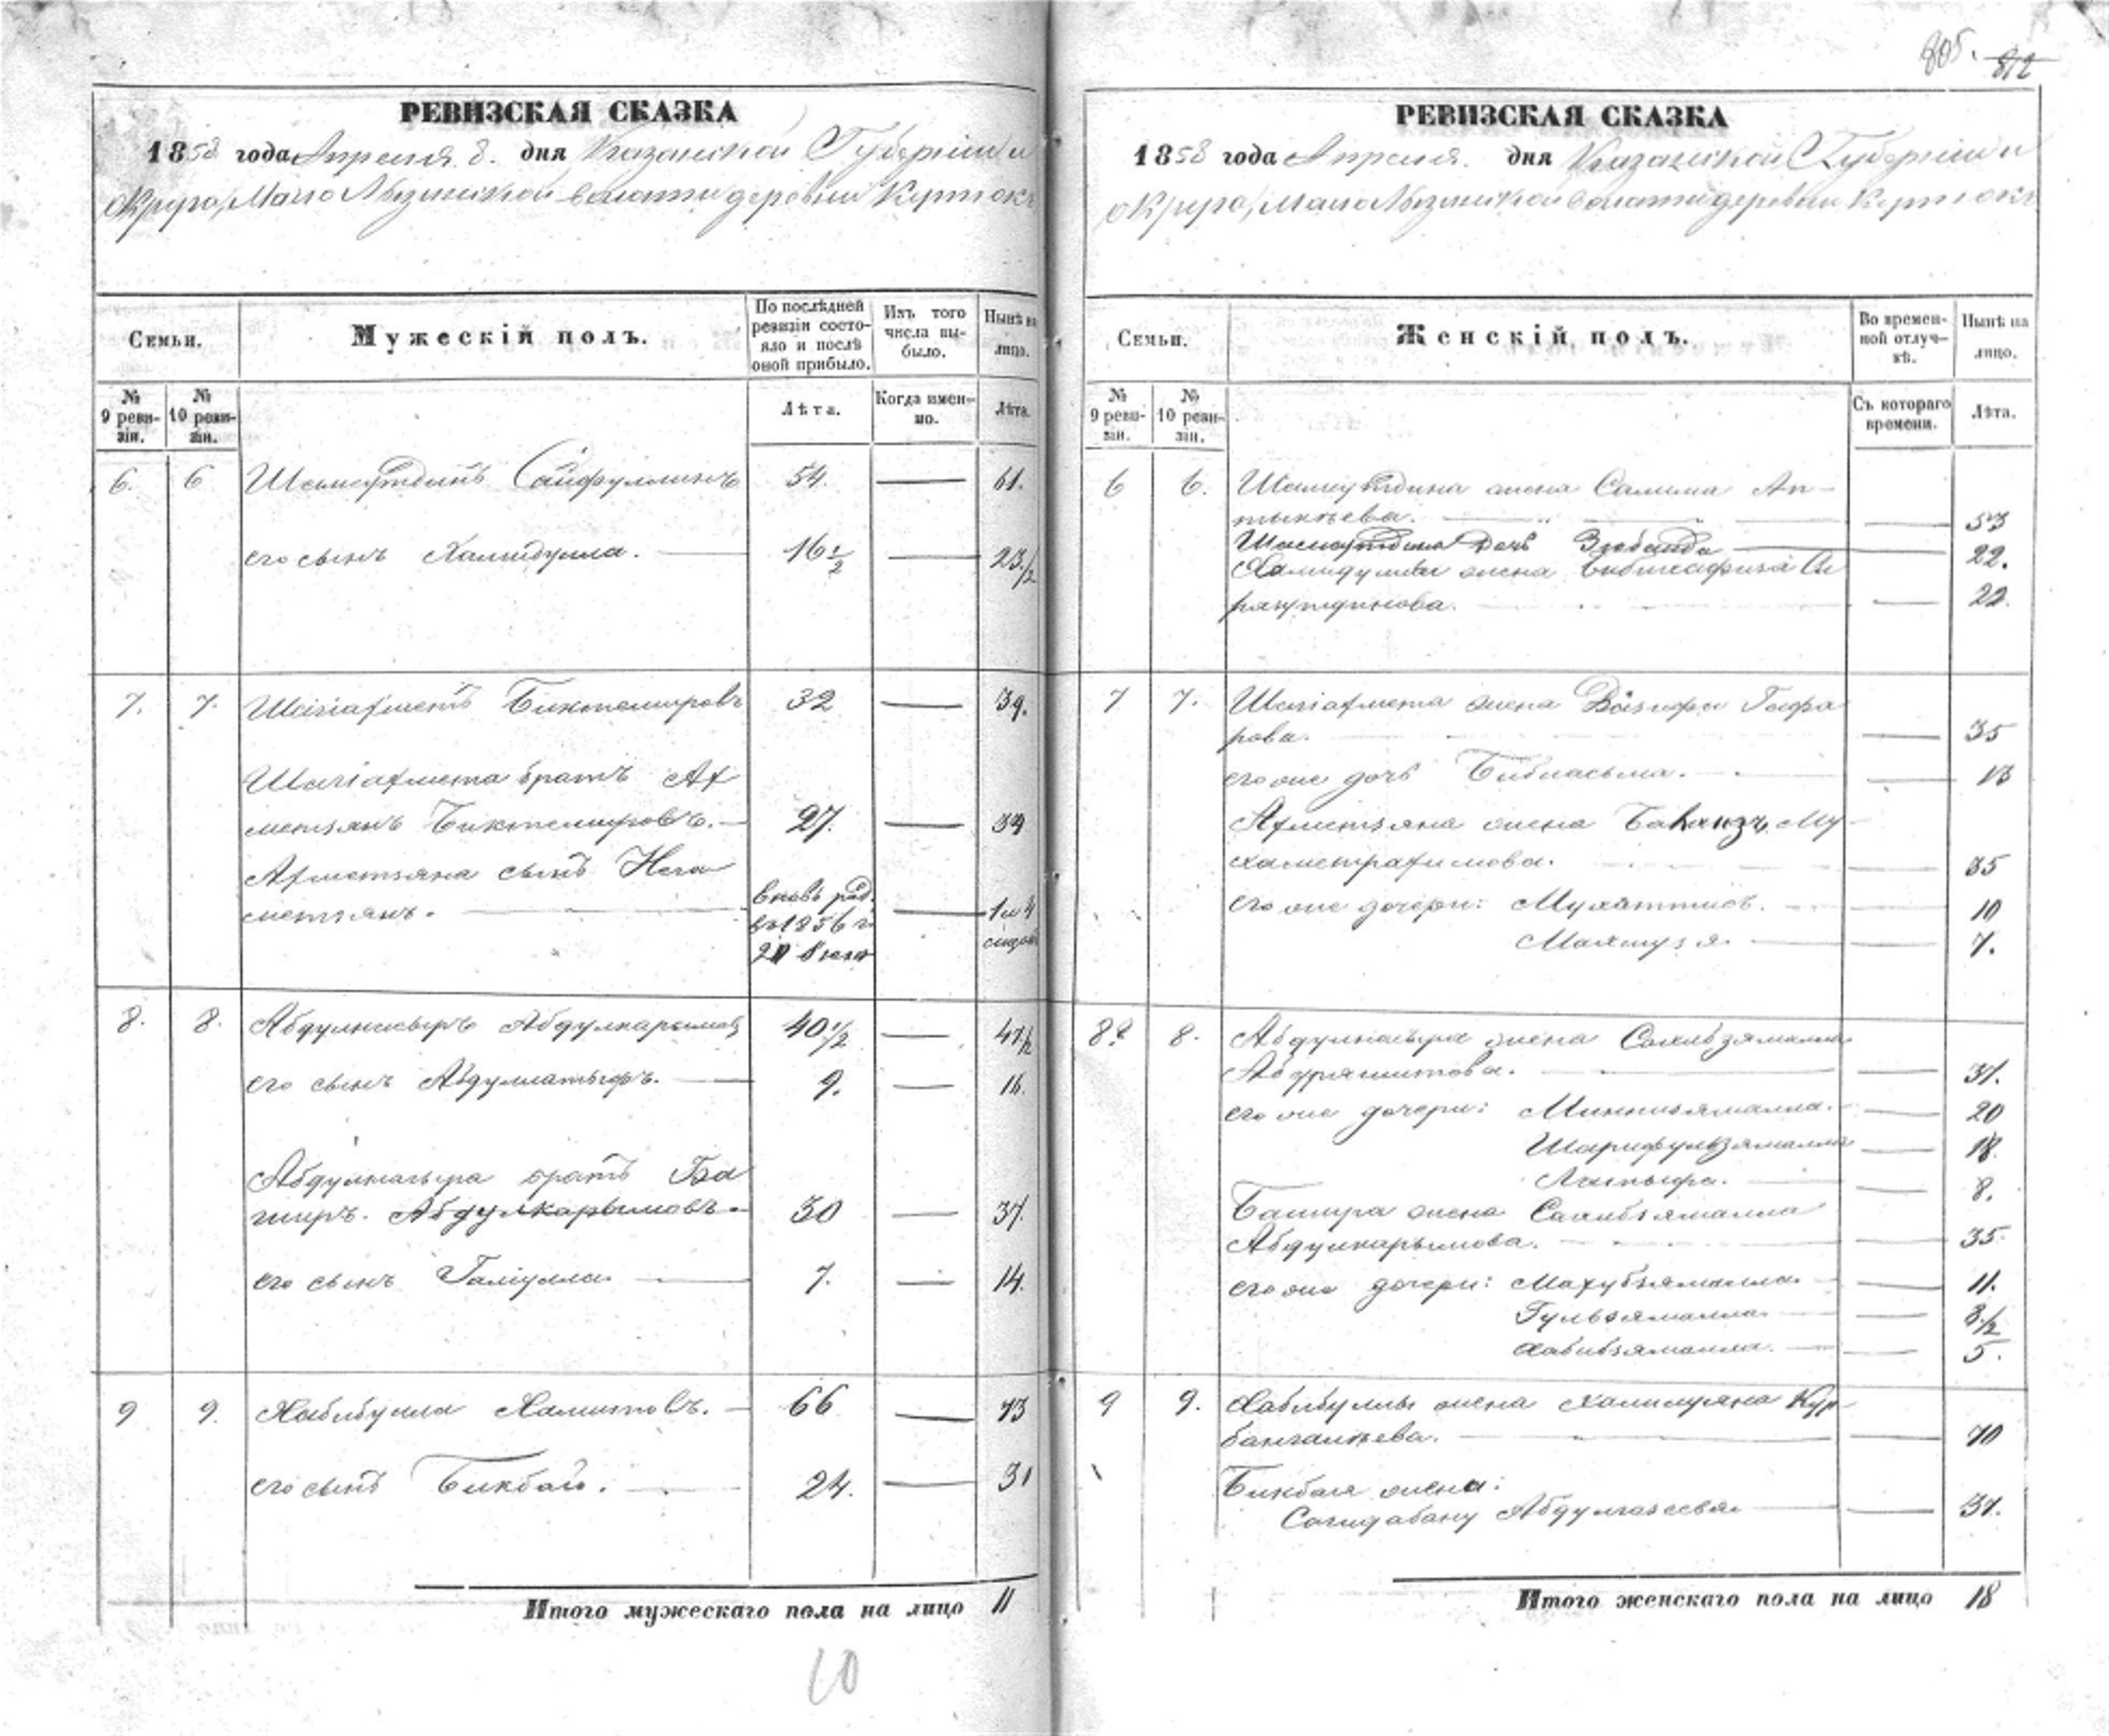 805. 812
РЕВИЗСКАЯ СКАЗКА
1858 года Апреля 8. дня Казанской Губернии и
Округа, Мало Лызинской волости деревни Куртюкъ
Семьи.
Мужескій полъ.
По послѣдней ревизіи состояло и послѣ оной прибыло.
Изъ того числа выбыло.
Нынѣ на лицо.
№ 9 ревизіи.
№ 10 ревизіи.
Лѣта.
Когда именно.
Лѣта.
6. 6 Шамсутдинъ Сайфуллинъ 54. 61.
его сынъ Хамидулла. 16 1/2 23 1/2
7. 7. Шагіахметъ Биктемировъ 32 39.
Шагіахмета братъ Ах
метзянъ Биктемировъ. 27. 34
Ахметзяна сынъ Нега
метзянъ. вновь рожд. 1 и 9
въ 1856 г.
8. 8. Абдулнасыръ Абдулкарымовъ 40 1/2 47 1/2
его сынъ Абдуллатыфъ. 9. 16.
Абдулнасыра братъ Ба
ширъ. Абдулкарымовъ. 30 37.
его сынъ Галіулла 7. 14.
9 9. Хабибулла Хамитовъ. 66 73
его сынъ Бикбай. 24. 31
Итого мужескаго пола на лицо 11
10
РЕВИЗСКАЯ СКАЗКА
1858 года Апреля. дня Казанской Губернии и
Округа, Мало Лызинской волости деревни Куртюкъ
Семьи.
Женскій полъ.
Во временной отлучкѣ.
Нынѣ на лицо.
№ 9 ревизіи.
№ 10 ревизіи.
Съ котораго времени.
Лѣта.
6 6. Шамсутдина жена Салима Ап-
тыкѣева. 53
Шамсутдина дочь Зюбаида 22.
Хамидуллы жена Бибисафиза Си
разутдинова. 22.
7 7. Шагіахмета жена Вазифа Гафа
рова. 35
его же дочь Бибиасьма. 13
Ахметзяна жена Му-
хаметрахимова. 35
его же дочери: 10
7.
8 8. Абдулнасыра жена Сахибзямалла
Абдряшитова. 37.
его же дочери: Миннизямалла. 20
Шарифульзямалла 18.
Латыфа. 8.
Башира жена Сахибзямалла
Абдулкарымова. 35
его же дочери: Махубзямалла. 11.
Гульзямалла 8 1/2
Хабибзямалла. 5.
9 9. Хабибуллы жена Халимузяна Кур-
бангалѣева. 70
Бикбая жена:
Сагидабану Абдулгазеева 37.
Итого женскаго пола на лицо 18